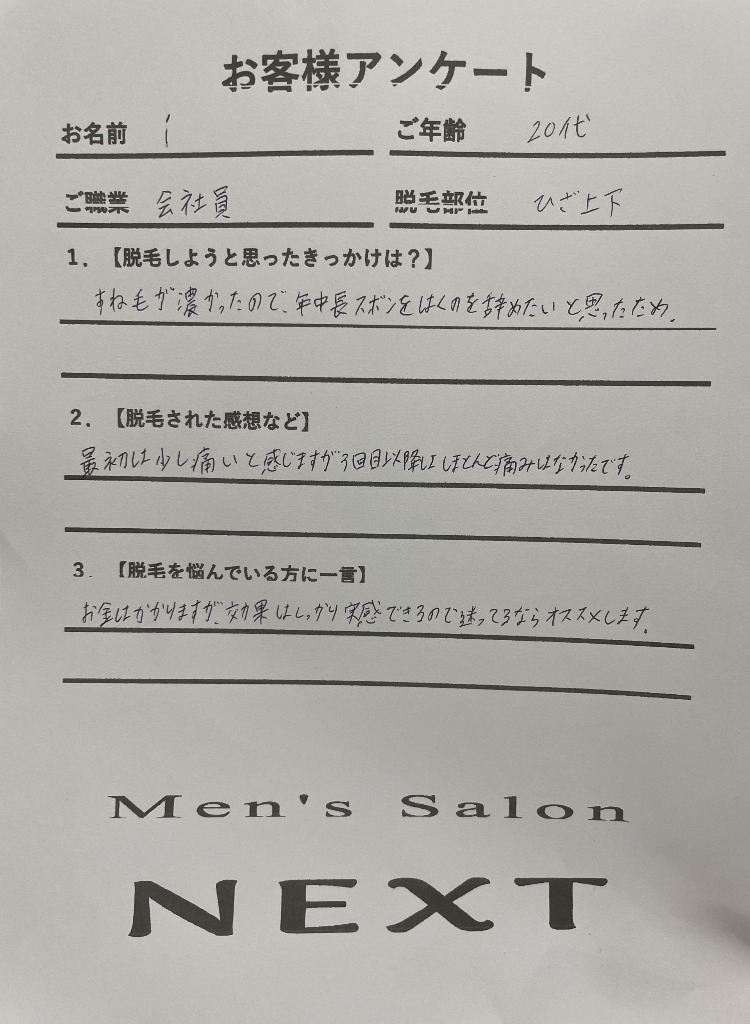 お客様アンケート
お名前 i ご年齢 20代
ご職業 会社員 脱毛部位 ひざ上下
1．【脱毛しようと思ったきっかけは？】
すね毛が濃かったので、年中長ズボンをはくのを辞めたいと思ったため.
2．【脱毛された感想など】
最初は少し痛いと感じますが3回目以降はほとんど痛みはなかったです。
3．【脱毛を悩んでいる方に一言】
お金はかかりますが、効果はしっかり実感できるので迷ってるならオススメします.
Men's Salon
NEXT